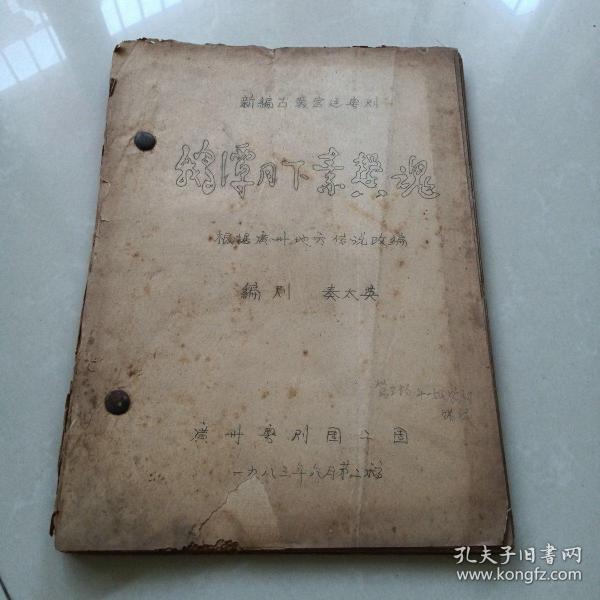 新编古装宫廷粤剧
鹅潭月下素馨魂
根据廣州地方传说改编
编剧 秦太英
廣州粤剧团二团
一九八三年六月第二稿
孔夫子旧书网
www.kongfz.com